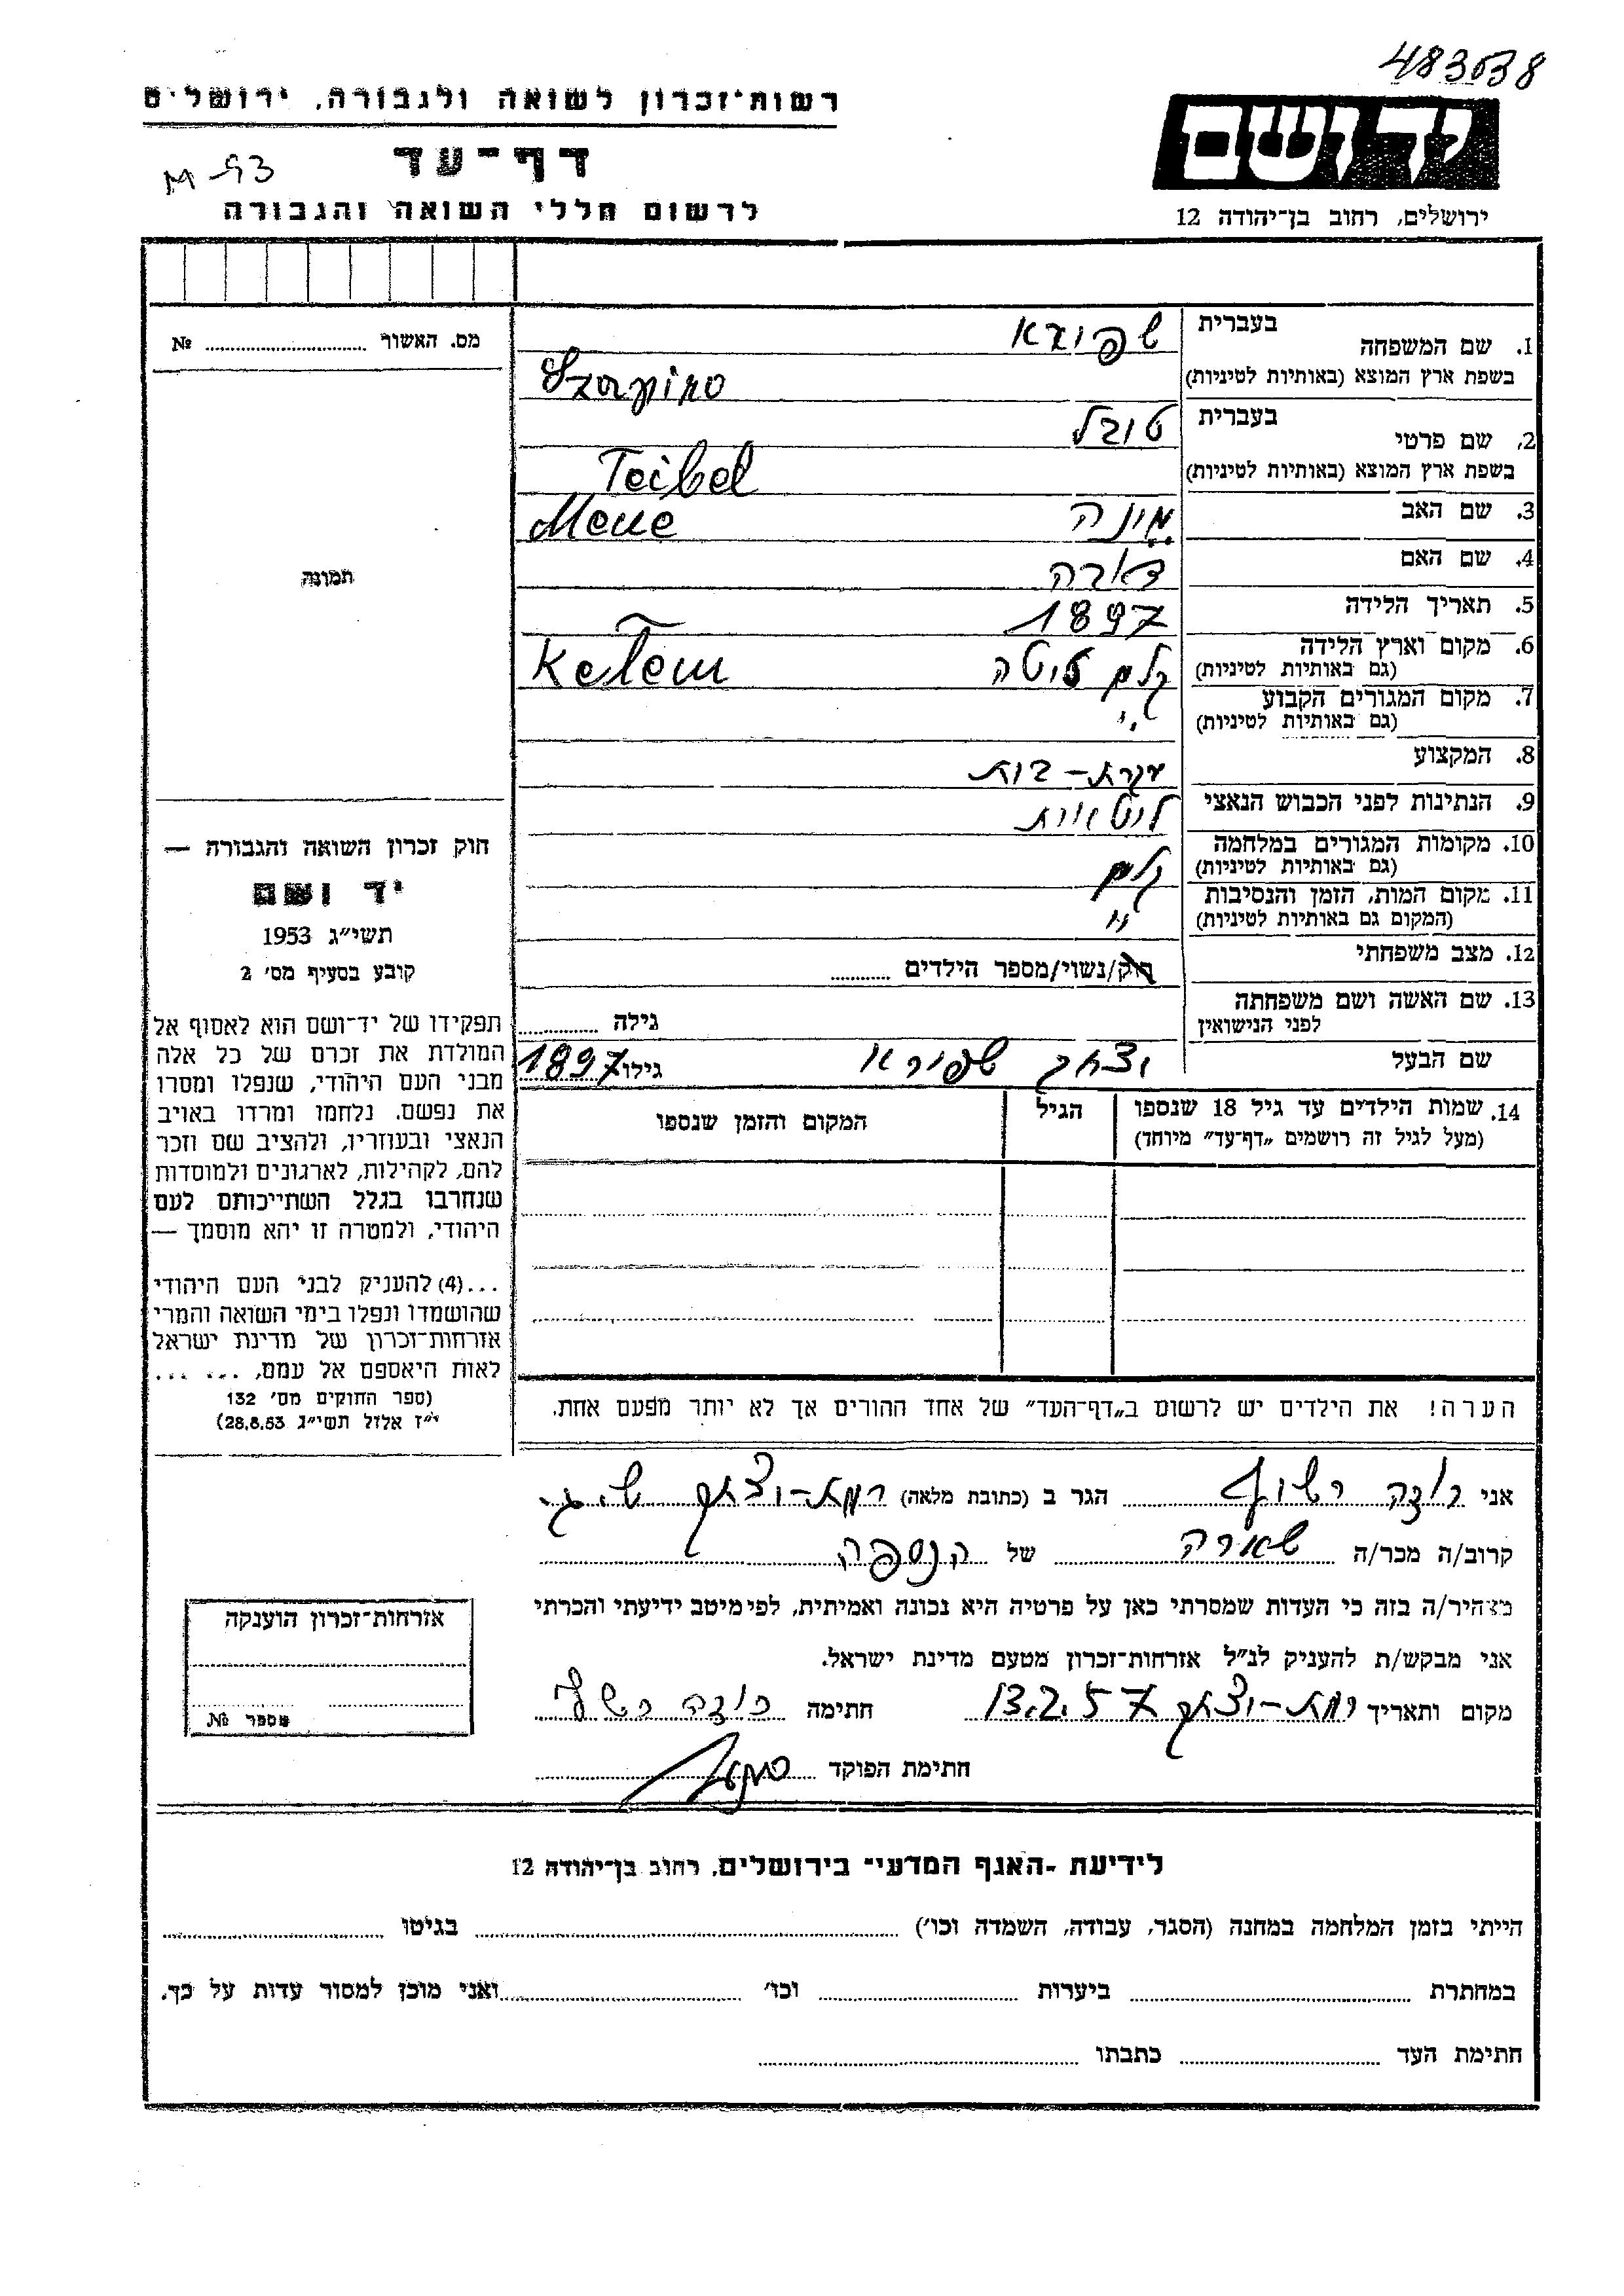 483038
רשות־זכרון לשואה ולגבורה, ירושלים
דף־עד
M-93
לרשום חללי השואה והגבורה
יד ושם
ירושלים, רחוב בן־יהודה 12
מס. האשור ........ №
1. שם המשפחה
בעברית שפירא
בשפת ארץ המוצא (באותיות לטיניות) Szapiro
2. שם פרטי
בעברית טובל
בשפת ארץ המוצא (באותיות לטיניות) Teibel
3. שם האב מינה Mene
4. שם האם
5. תאריך הלידה 1897
6. מקום וארץ הלידה
(גם באותיות לטיניות) קלם ליטה Kelem
7. מקום המגורים הקבוע
(גם באותיות לטיניות) "
8. המקצוע עקרת-בית
9. הנתינות לפני הכבוש הנאצי ליטאית
10. מקומות המגורים במלחמה
(גם באותיות לטיניות) קלם
11. מקום המות, הזמן והנסיבות
(המקום גם באותיות לטיניות) "
12. מצב משפחתי רוק/נשוי/מספר הילדים ........
13. שם האשה ושם משפחתה
לפני הנישואין גילה ........
שם הבעל יצחק שפירא גילו 1897
14. שמות הילדים עד גיל 18 שנספו
(מעל לגיל זה רושמים „דף־עד” מיוחד)
הגיל
המקום והזמן שנספו
הערה! את הילדים יש לרשום ב„דף־העד” של אחד ההורים אך לא יותר מפעם אחת.
תמונה
חוק זכרון השואה והגבורה —
יד ושם
תשי״ג 1953
קובע בסעיף מס׳ 2
תפקידו של יד־ושם הוא לאסוף אל
המולדת את זכרם של כל אלה
מבני העם היהודי, שנפלו ומסרו
את נפשם, נלחמו ומרדו באויב
הנאצי ובעוזריו, ולהציב שם וזכר
להם, לקהילות, לארגונים ולמוסדות
שנחרבו בגלל השתייכותם לעם
היהודי, ולמטרה זו יהא מוסמך —
...(4) להעניק לבני העם היהודי
שהושמדו ונפלו בימי השואה והמרי
אזרחות־זכרון של מדינת ישראל
לאות היאספם אל עמם, ... ...
(ספר החוקים מס׳ 132
י״ז אלול תשי״ג 28.8.53)
אני רשף הגר ב (כתובת מלאה) רמת-יצחק
קרוב/ה מכר/ה שארה של הנספה
מצהיר/ה בזה כי העדות שמסרתי כאן על פרטיה היא נכונה ואמיתית, לפי מיטב ידיעתי והכרתי
אני מבקש/ת להעניק לנ״ל אזרחות־זכרון מטעם מדינת ישראל.
מקום ותאריך רמת-יצחק 13.2.57 חתימה
חתימת הפוקד
אזרחות־זכרון הוענקה
מספר №
לידיעת ־האגף המדעי־ בירושלים, רחוב בן־יהודה 12
הייתי בזמן המלחמה במחנה (הסגר, עבודה, השמדה וכו׳) ........ בגיטו ........
במחתרת ........ ביערות ........ וכו׳ ........ ואני מוכן למסור עדות על כך.
חתימת העד ........ כתבתו ........